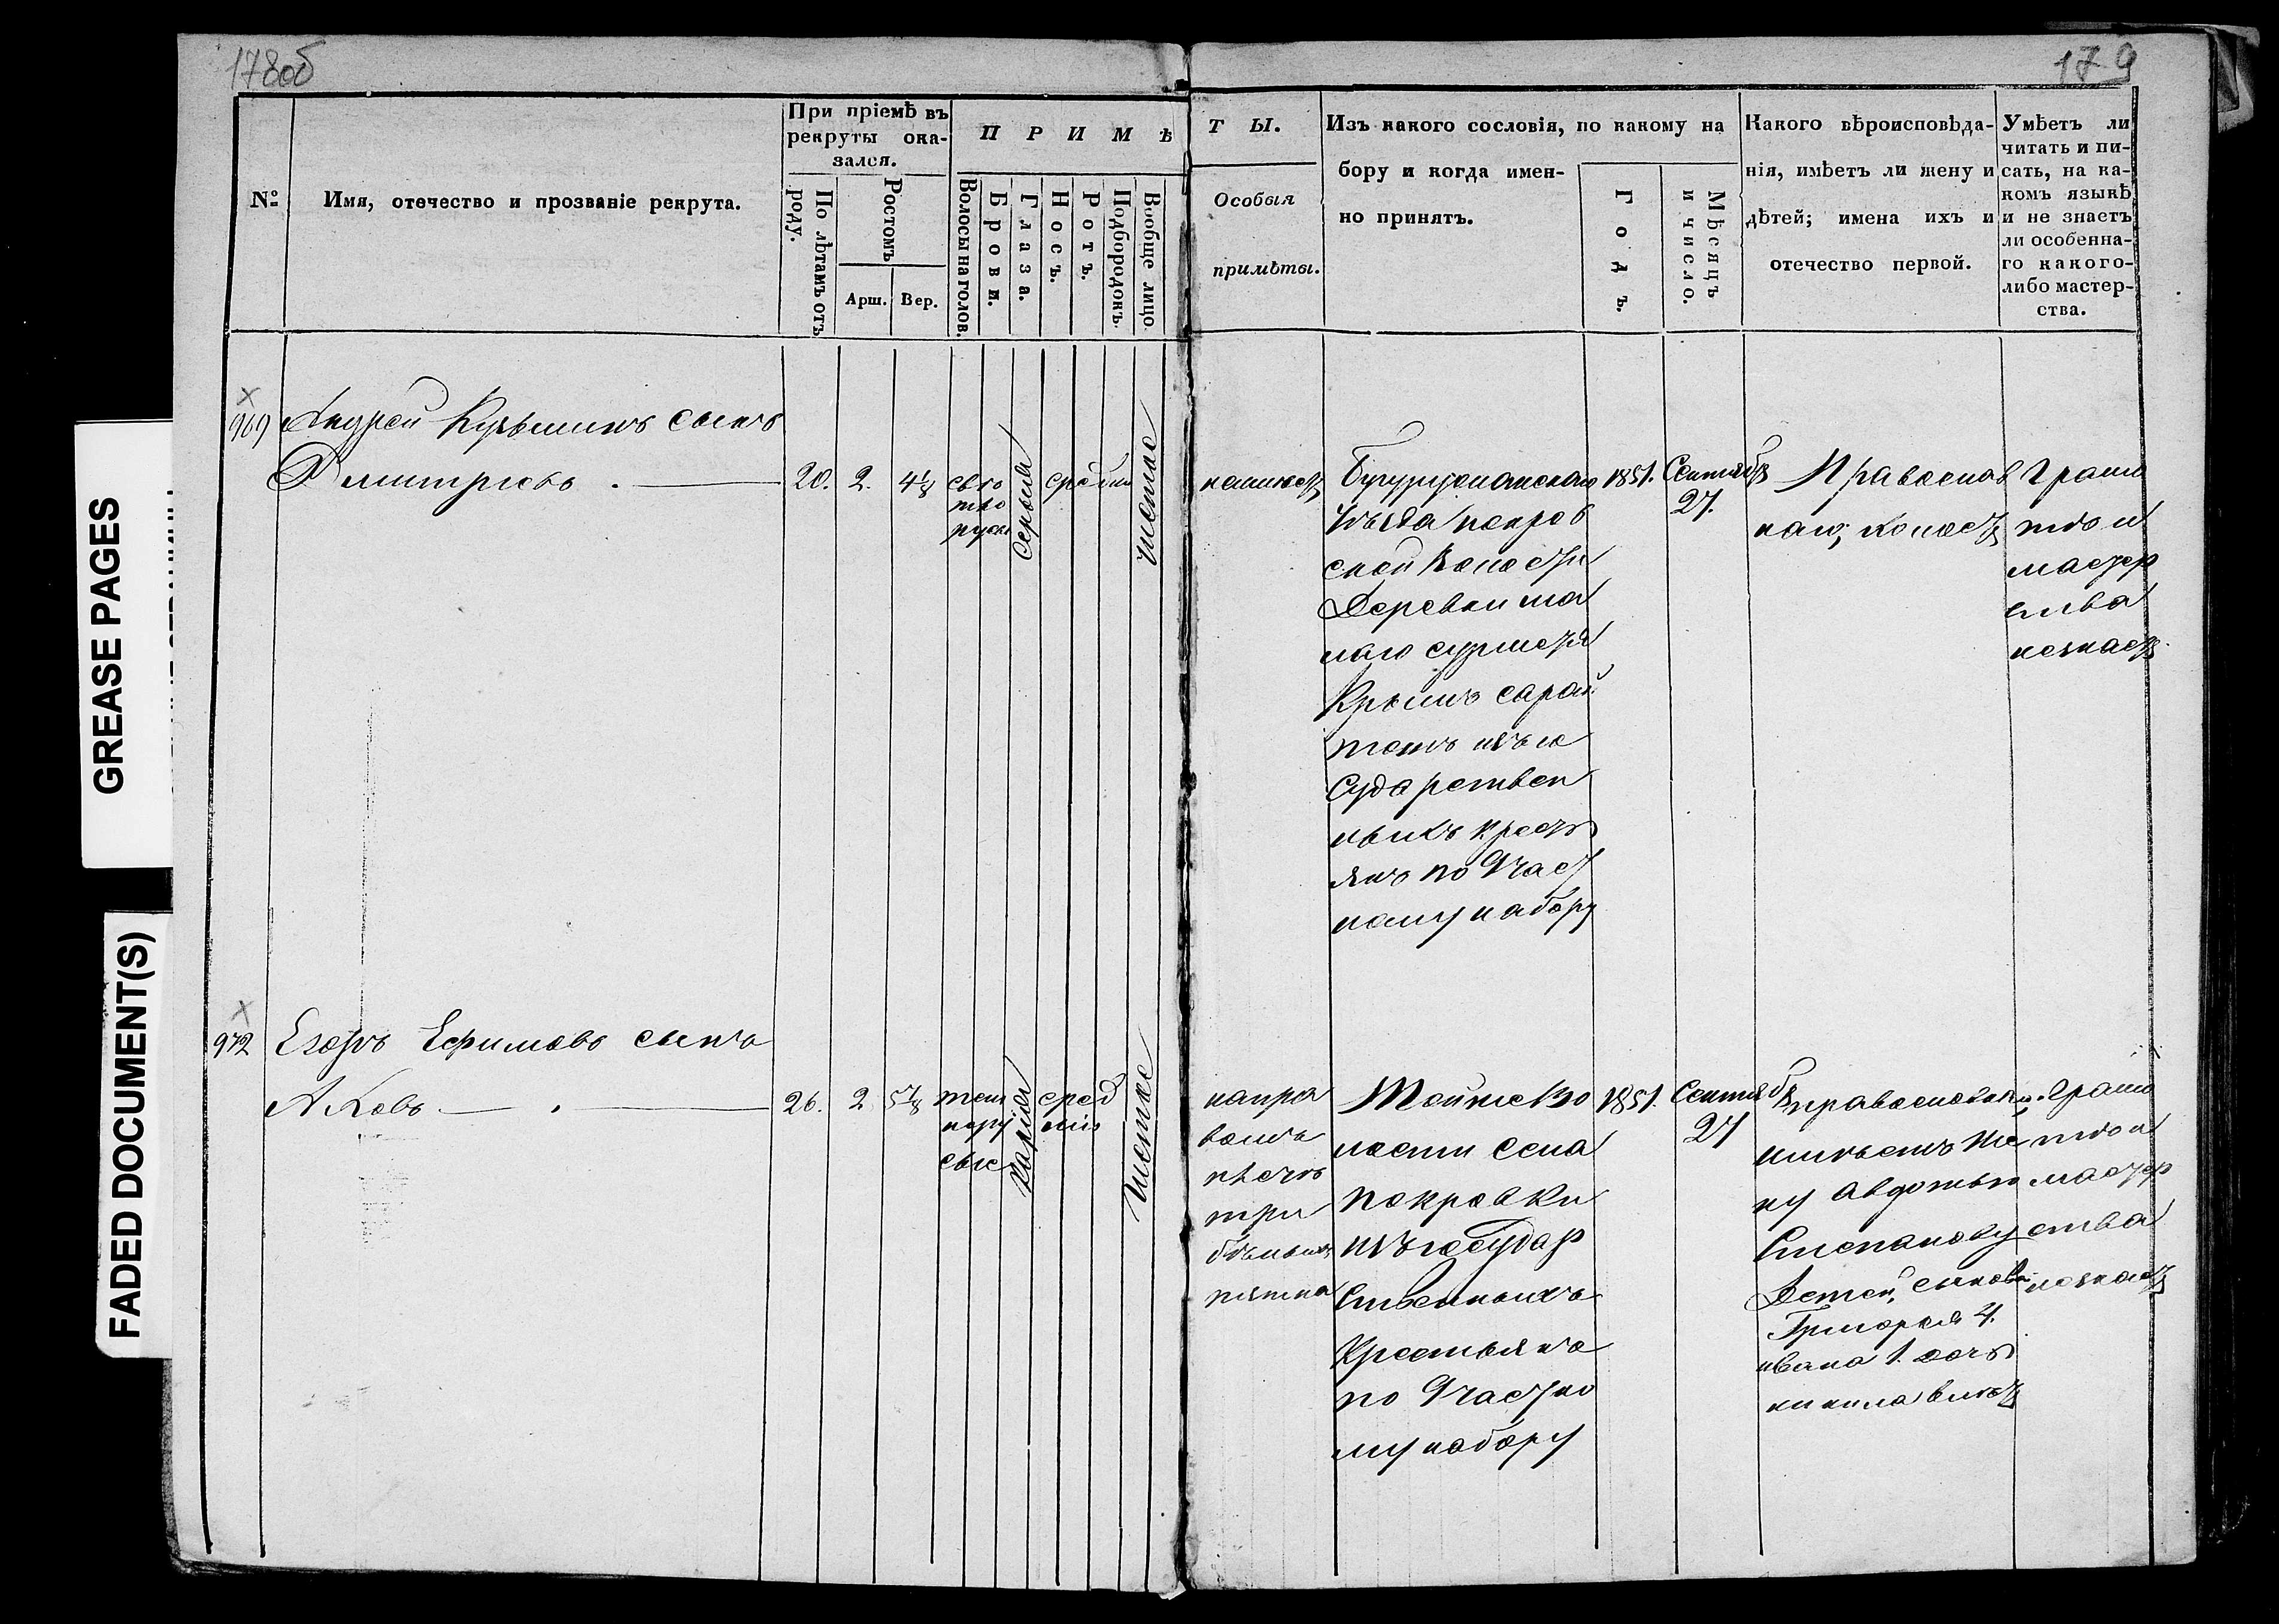 178об
179
GREASE PAGES
FADED DOCUMENT(S)
№
Имя, отечество и прозваніе рекрута.
При пріемѣ въ
рекруты ока-
зался.
По лѣтамъ отъ
роду.
Ростомъ
Арш.
Вер.
ПРИМѢ
Волосы на голов.
Брови.
Глаза.
Носъ.
Ротъ.
Подбородокъ.
Вообще лицо
ТЫ.
Особыя
примѣты.
Изъ какого сословія, по какому на
бору и когда имен-
но принятъ.
Годъ.
Мѣсяцъ
и число.
Какого вѣроисповѣда-
нія, имѣетъ ли жену и
дѣтей; имена ихъ и
отечество первой.
Умѣетъ ли
читать и пи-
сать, на ка-
комъ языкѣ
и не знаетъ
ли особенна-
го какого-
либо мастер-
ства.
969
Андрей Кузьминъ сынъ
Дмитріевъ.
20.
2.
4 1/8
свѣ
тло
русы
серыя
средни
чистое
неимеетъ
Бугурусланскаго
уѣзда покров
ской волости
Деревни ма
лаго сурмета
Крымъ сарай
тожъ изъ го
сударствен
ныхъ кресть
янъ по Част
ному набору
1851.
Сентября
27.
Православ
наго, холостъ
Грамо
тѣ и
мастер
ства
незнаетъ
972
Егоръ Ефимовъ сынъ
Аковъ
26.
2
5 7/8
тем
нору
сые
карія
сред
ніе
чистое
направ
вомъ
плечѣ
три
белыхъ
пятна
волости села
покровки
изъ государ
ственныхъ
Крестьянъ
по Частно
му набору
1851.
Сентября
27
православнаго,
имѣетъ же
ну Авдотью
Степанову
Детей, сыновей
Григорья 4.
ивана 1. дочь
Грамо
тѣ и
мастер
ства
незнаетъ